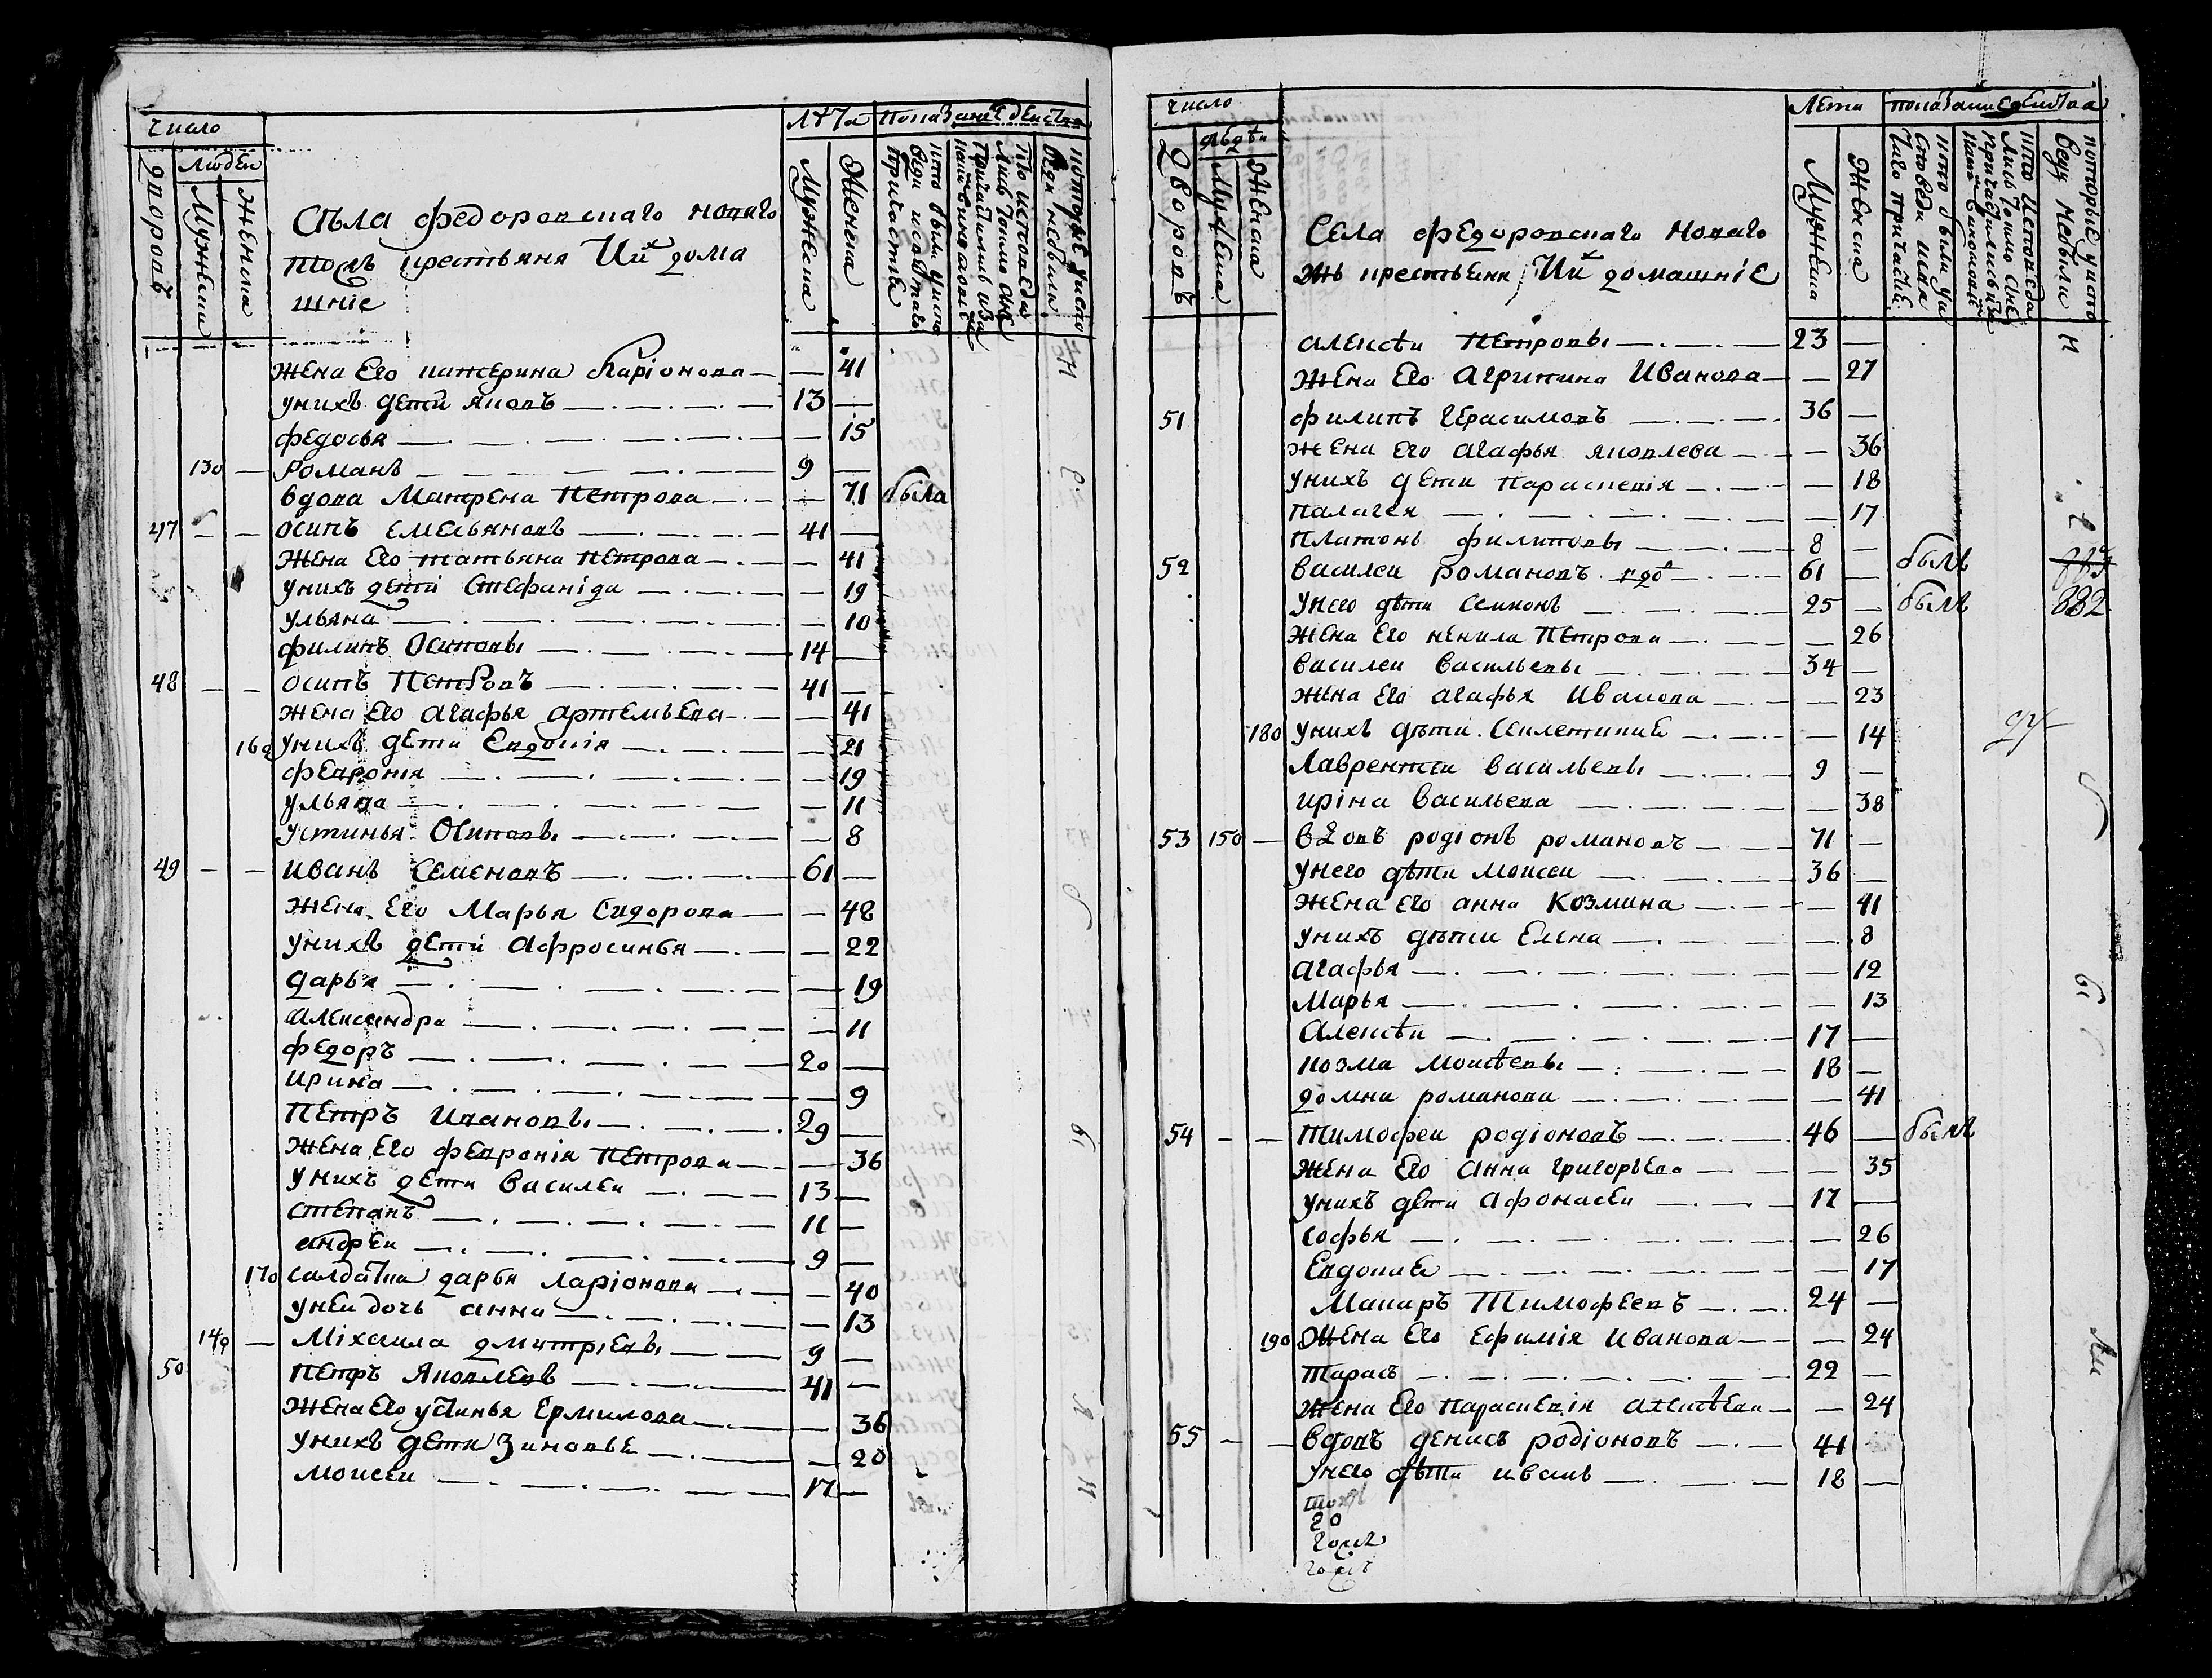 число
Людеи
дворовъ
Мужеска
Женска
Сѣла федоровскаго новаго
тожъ крестьяня Ихъ дома
шніе
Лѣта
Показание действа
Мужеска
Женска
кто были у испо
веди и с�таго
причастие
кто исповеда
лись токмо а не
причастились и за
каким винословие
которые у испо
веди небыли
жена Его катерина Ларіонова — 41
унихъ дети яковъ 13 —
федосья — 15
130 — романъ 9 —
вдова Матрена Петрова — 71 была
47 — — осипъ емельяновъ 41 —
жена Его татьяна Петрова — 41
унихъ дети Стефаніда — 19
ульяна — 10
филипъ Осиповы 14 —
48 — — осипъ Петровъ 41 —
жена Его агафья артемьева — 41
160 унихъ дети Евдокія — 21
февронія — 19
ульяна — 11
устинья Осиповы — 8
49 — — иванъ Семеновъ 61 —
жена Его Марья Сидорова — 48
унихъ дети афросинья — 22
дарья — 19
александра — 11
федоръ 20 —
ирина — 9
Петръ ивановы 29 —
жена Его февронія Петрова — 36
унихъ дети василеи 13 —
степанъ 11 —
андреи 9 —
170 салдатка дарья ларіонова — 40
унеи дочь анна — 13
140 — міхаила дмитріевы 9 —
50 Петръ Яковлевъ 41 —
жена Его устинья Ермилова — 36
унихъ дети Зиновье — 20
моисеи 17 —
число
людѣи
Дворовъ
Мужеска
Женска
Села федоровскаго новаго
жъ крестьяня Ихъ домашніе
Лета
показание действа
Мужеска
Женска
кто были у и
споведи и свя
таго причастие
кто исповеда
лись токмо а не
причастились и за
каким виносл
которые у испо
веди небыли
алексѣи Петровы 23 —
жена Его агрипина Иванова — 27
51 филипъ герасимовъ 36 —
жена Его агафья яковлева — 36
унихъ дети параскевія — 18
палагея — 17
платонъ филиповы 8 —
52 василеи романовъ вдо 61 — былъ
унего дѣти Семионъ 25 — былъ 882
жена Его ненила Петрова — 26
василеи васильевы 34 —
жена Его агафья иванова — 23
180 унихъ дѣти Секлетикия — 14
Лаврентеи васильевы 9 —
иріна васильева — 38
53 150 — вдовъ родіонъ романовъ 71 —
унего дѣти моисеи 36 —
жена Его анна козмина — 41
унихъ дѣти Елена — 8
агафья — 12
марья — 13
алексѣи 17 —
козма моисѣевы 18 —
домна романова — 41
54 — — тимофеи родіоновъ 46 — былъ
жена Его анна григорьева — 35
унихъ дети афонасеи 17 —
софья — 26
Евдокия — 17
макаръ Тимофеевъ 24 —
190 жена Его Ефимія иванова — 24
тарасъ 22 —
жена Его параскевія алексѣева — 24
55 — — вдовъ денисъ родіоновъ 41
унего дѣти иванъ 18 —